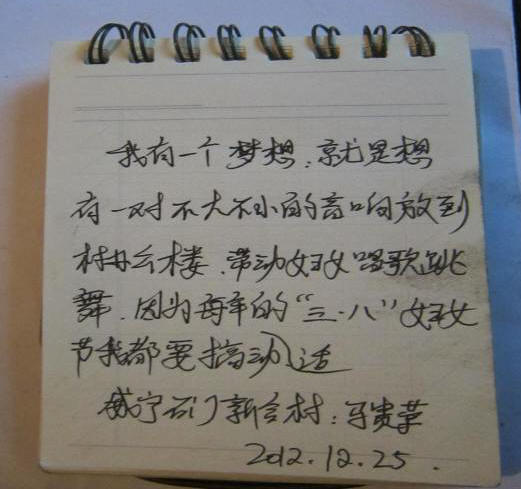 我有一个梦想.就是想
有一对不大不小的音响放到
村办公楼.带动妇女唱歌跳
舞.因为每年的“三·八”妇女
节我都要搞动适
威宁石门新合村:马贵革
2012.12.25.